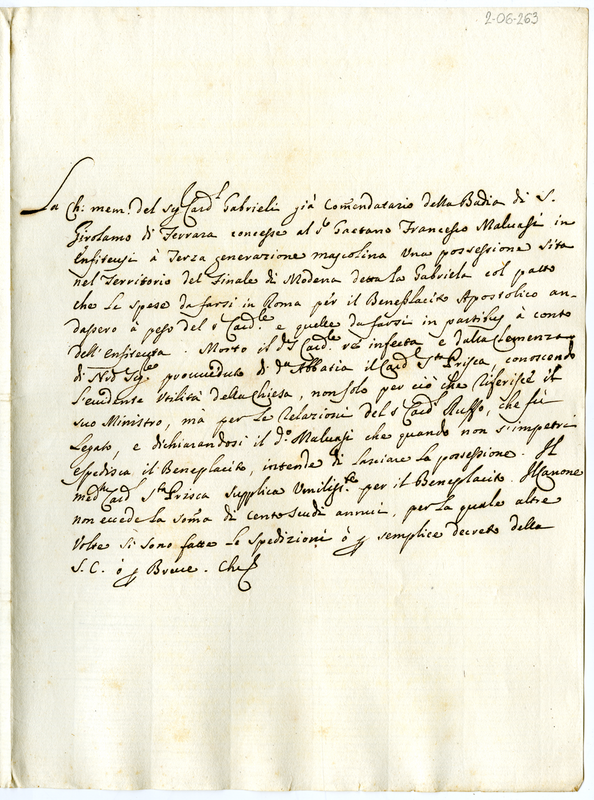 2-06-263
La Ch: mem: del Sig.r Card.l Gabrieli già Comendatario della Badia di S.
Girolamo di Ferrara concesse al S.r Gaetano Francesco Maluasi in
Enfiteusi à terza generazione mascolina una possessione sita
nel Territorio del Finale di Modena detta la Gabriela col patto
che le spese da farsi in Roma per il Beneplacito Apostolico an-
dassero à peso del S. Card.le e quelle da farsi in partibus à conto
dell'Enfiteuta. Morto il d.o Card.le re infecta e dalla Clemenza
di N.ro Sig.re proueduto di d.a Abbatia il Card.l S.ta Prisca conoscendo
l'euidente Vtilità della Chiesa, non solo per ciò che riferisce il
suo Ministro, mà per le Relazioni del S. Card.l Ruffo, che fù
Legato, e dichiarandosi il d.o Maluasi che quando non s'impetri
espedisca il Beneplacito, intende di lasciare la possessione. Il
med.o Card.l S.ta Prisca supplica Vmiliss.te per il Beneplacito. Il Canone
non eccede la soma di cento scudi annui, per la quale altre
Volte si sono fatte le spedizioni ò p semplice decreto della
S. C. ò p Breue. Che